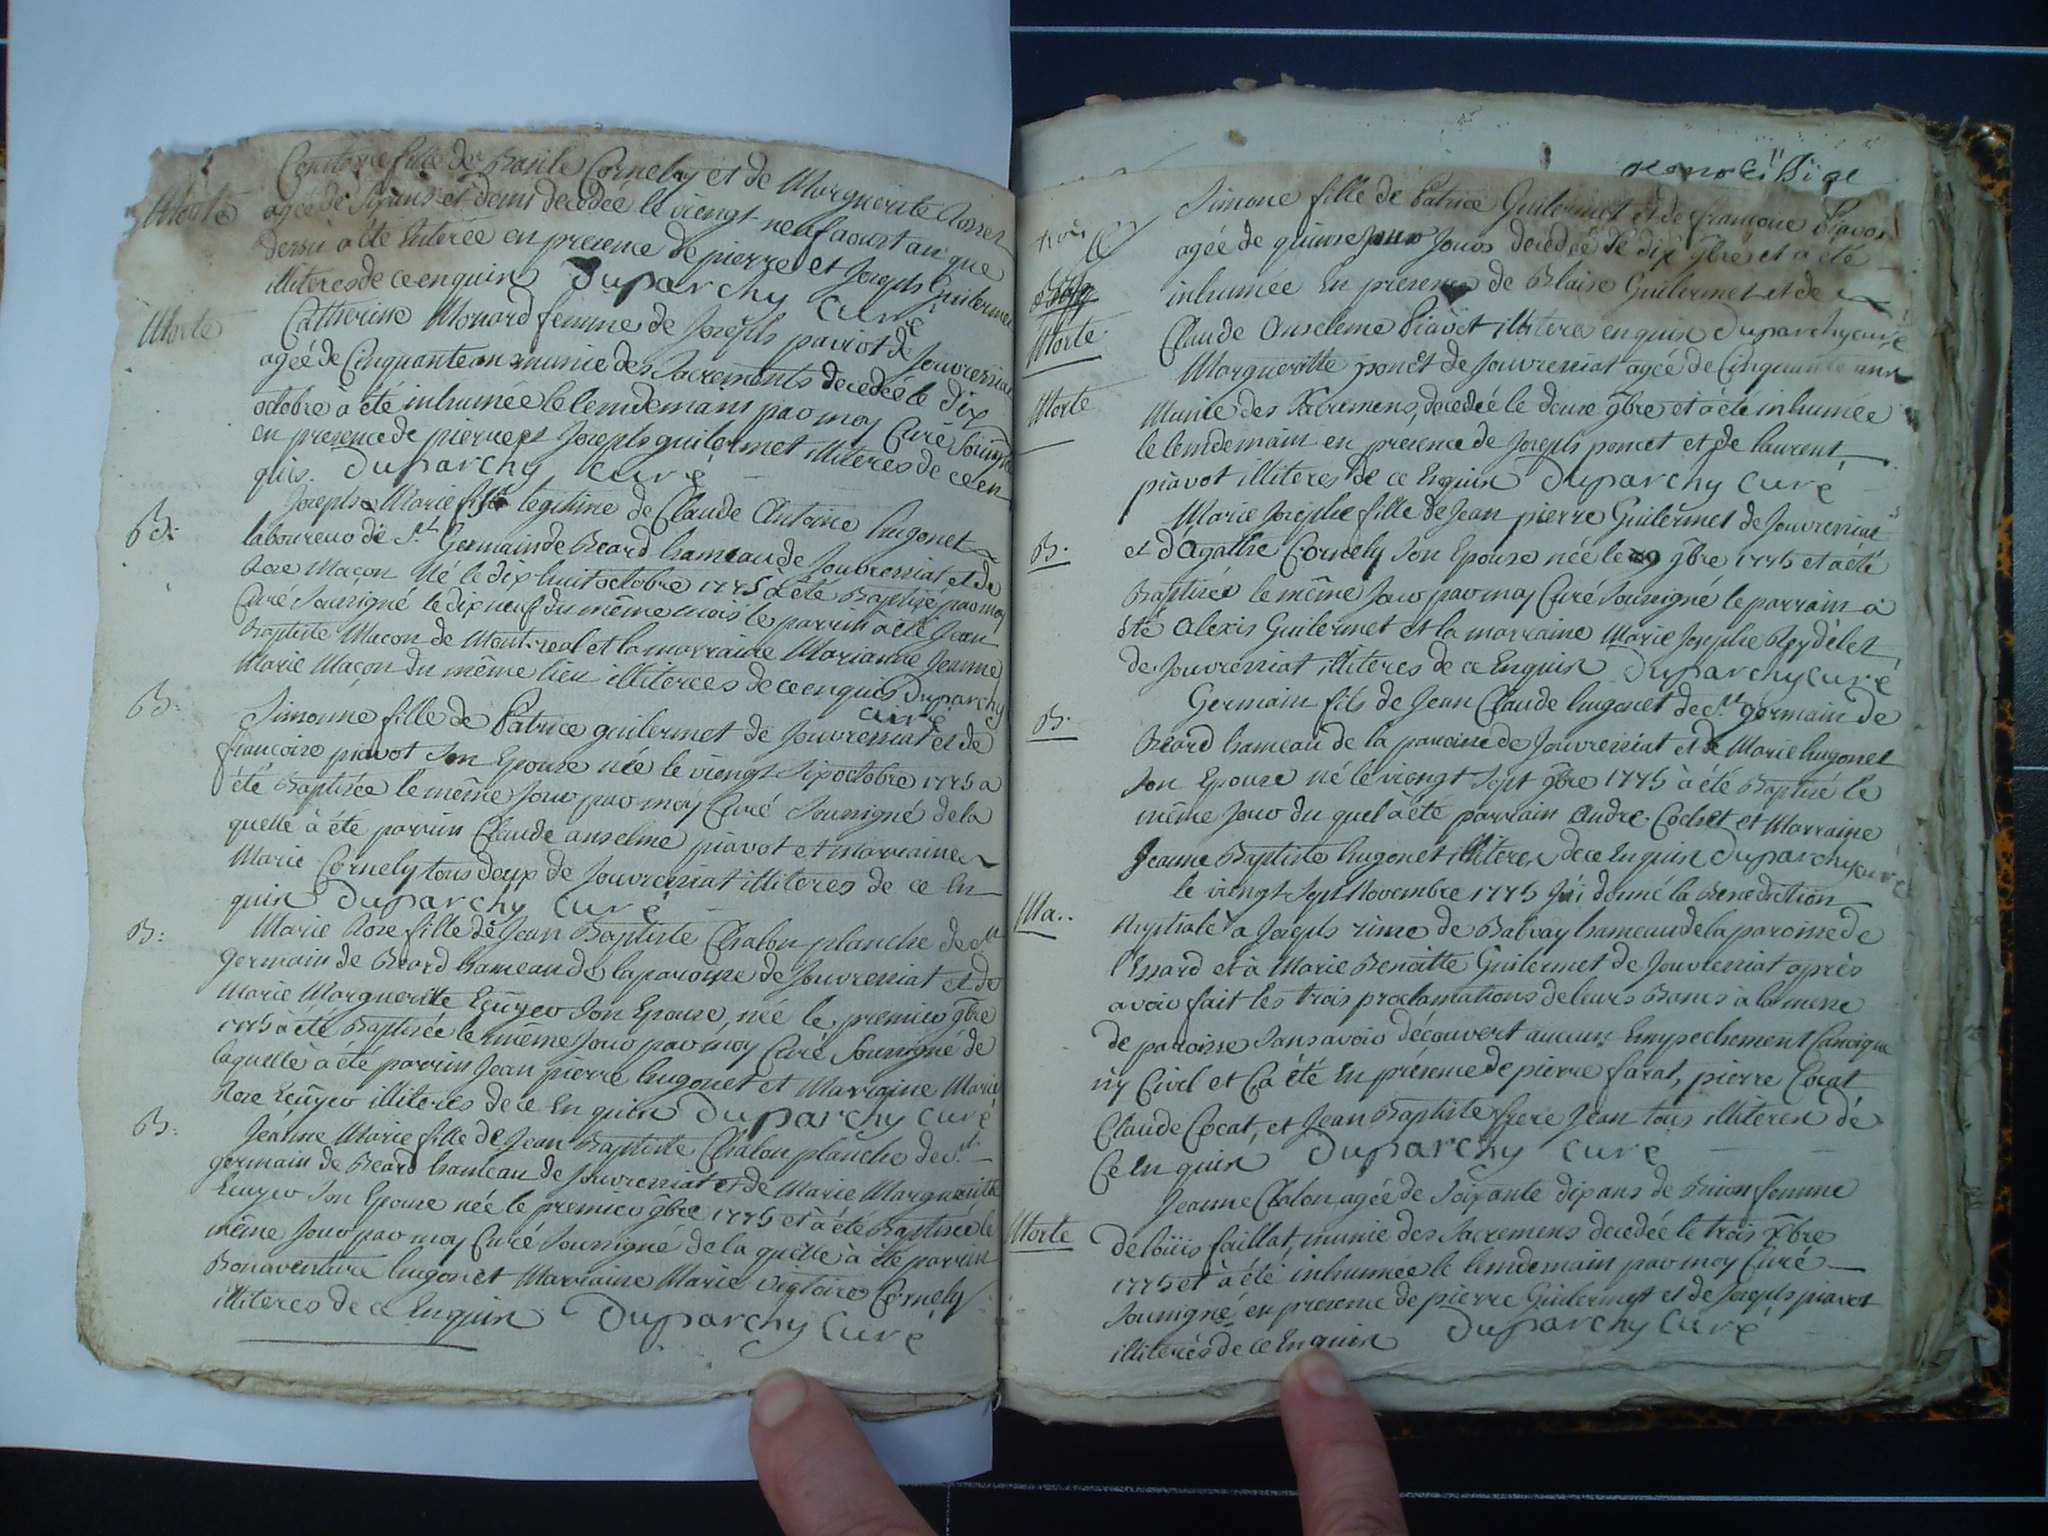 fille de Basile Cornely et de Marguerite
Morte
agée de six ans et demi decedée le viengt neuf aoust an que
dessu a été Enterée en presence de pierre et Joseph Guilermet
illiteres de ce enquis Duparchy Curé
Morte
Catherine Monard femme de Joseph paviot de Jouvressiat
agée de Cinquante munie des Sacrements decedée le dix
octobre a été inhumée le lendemain par moy Curé
en presence de pierre et Joseph guilermet illiteres de ce en
quis. Duparchy Curé
B:
Joseph Marie legitime de Claude Antoine hugonet
laboureur de St. Germain de Beard hameau de Jouvressiat et de
Rose Maçon Né le dix huit octobre 1775 a été Baptizé par moy
Curé Soussigné le dix neuf du même mois le parrin à été Jean
Baptiste Maçon de Montreal et la marraine Marianne femme
Marie Maçon du même lieu illiterees de ce enquis Duparchy
curé
B:
Simonne fille de Patrice guilermet de Jouvressiat et de
françoise piavot Son Epouse née le viengt Six octobre 1775 a
été Baptisée le même Jour par moy Curé Soussigné de la
quelle à été parrin Claude anselme piavot et marraine
Marie Cornely tous deux de Jouvressiat illiteres de ce En
quis Duparchy Curé
B:
Marie Rose fille de Jean Baptiste Chalon planche de St
Germain de Beard hameau de la paroisse de Jouvressiat et de
Marie Marguerite Ecuyer Son Epouse, née le premier 9bre
1775 à été Baptisée le même Jour par moy Curé Soussigné de
laquelle à été parrin Jean pierre hugonet et Marraine Marie
Rose Ecuyer illiteres de ce Enquis Duparchy Curé
B:
Jeanne Marie fille de Jean Baptiste Chalon planche de St.
germain de Beard hameau de Jouvressiat et de Marie Marguerite
Ecuyer Son Epouse née le premier 9bre 1775 et à été Baptisée le
même Jour par moy Curé Soussigné de la quelle à été parrin
Bonaventure hugonet Marraine Marie victoire Cornely
illiteres de ce Enquis Duparchy Curé
Simone fille de Patrice Guilermet et de françoise Piavot
agée de quinse Jours decedée le dix 9bre et a été
inhumée En presence de Blaise Guilermet et de
Morte
Claude Anseleme Piavot illiteres enquis Duparchy curé
Morte
Margueritte poncet de Jouvressiat agée de Cinquante ans
Munie des Sacremens, decedée le douse 9bre et à été inhumée
le lendemain en presence de Joseph poncet et de laurent
piavot illiteres de ce Enquis Duparchy Curé
B.
Marie Josephe fille de Jean pierre Guilermet de Jouvressiat
et d'Agathe Cornely Son Epouse née le 9bre 1775 et à été
Baptisée le même Jour par moy Curé Soussigné le parrain a
été Alexis Guilermet et la marraine Marie Josephe Reydelet
de Jouvressiat illiteres de ce Enquis Duparchy Curé
B.
Germain fils de Jean Claude hugonet de St. germain de
Béard hameau de la paroisse de Jouvressiat et de Marie hugonet
Son Epouse né le viengt Sept 9bre 1775 à été Baptisé le
même Jour du quel à été parrain Andre Cochet et Marraine
Jeanne Baptiste hugonet illiteres de ce Enquis Duparchy curé
Ma..
le viengt Sept Novembre 1775 J'ai donné la Benediction
Nuptiale a Joseph de Balvay hameau de la paroisse de
l'Essard et à Marie Benoitte Guilermet de Jouvressiat après
avoir fait les trois proclamations de leurs Bans à la messe
de paroisse Sans avoir découvert aucun Empechement Canoique
ny Civil et Ca été En présence de pierre farat, pierre Cocat
Claude Cocat, et Jean Baptiste frere Jean tous illiteres dé
Ce Enquis Duparchy Curé
Morte
Jeanne Chalon, agée de Soixante dix ans de Brion femme
de loüis faillat, munie des Sacremens decedée le trois Xbre
1775 et à été inhumée le lendemain par moy Curé
Soussigné en presence de pierre Guilermet et de Joseph piavot
illiterés de ce Enquis Duparchy Curé